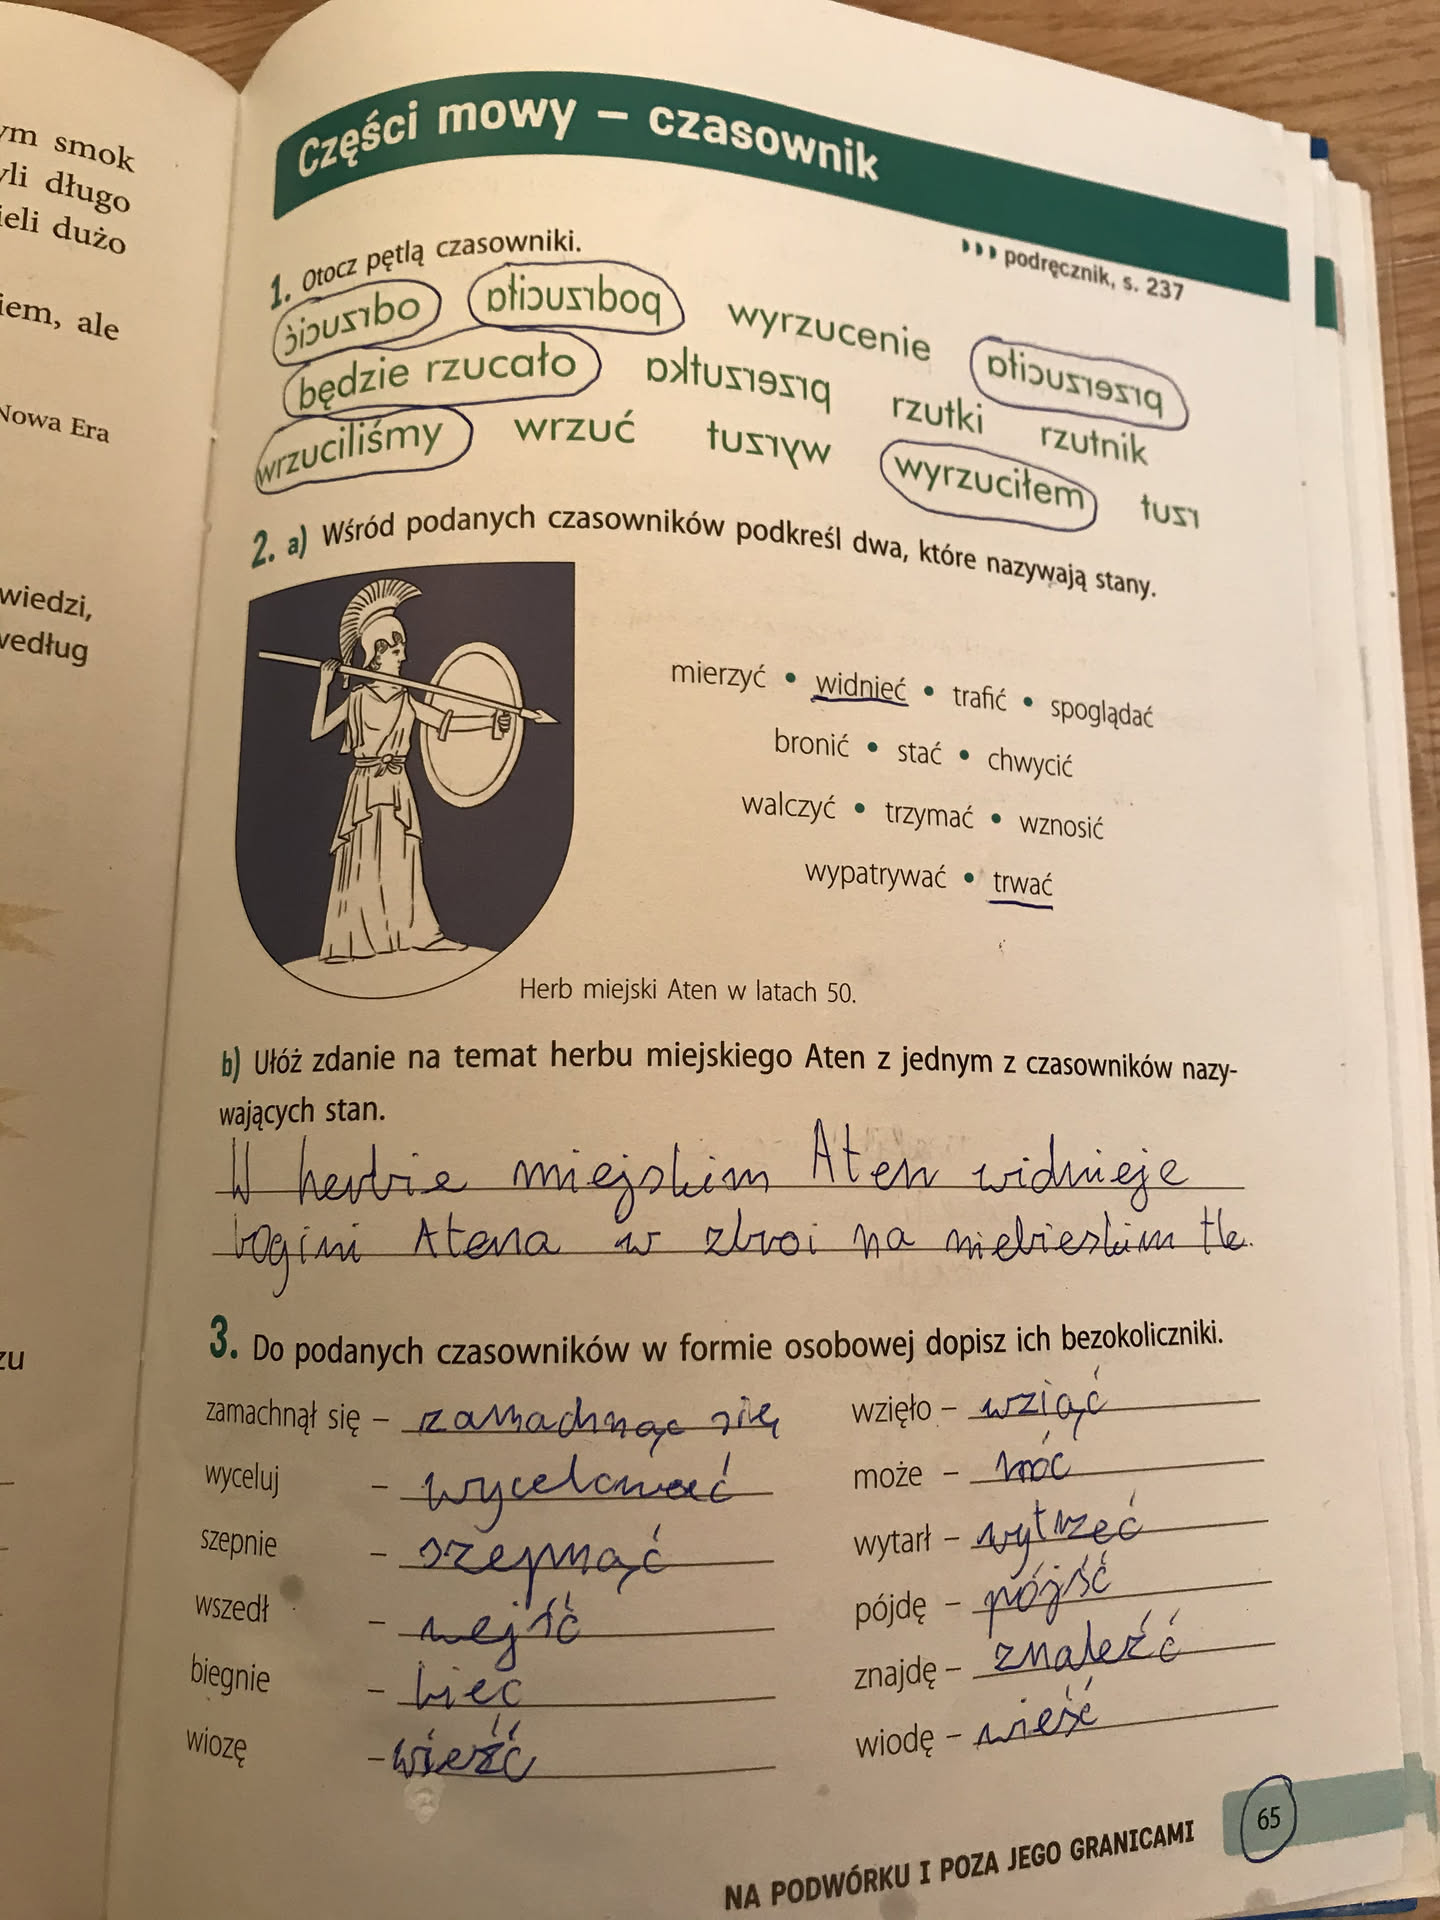 ym smok
yli długo
ieli dużo
iem, ale
Nowa Era
wiedzi,
według
zu
Części mowy – czasownik
podręcznik, s. 237
1. Otocz pętlą czasowniki.
odrzucić podrzuciła wyrzucenie przerzuciła
będzie rzucało przerzutka rzutki rzutnik
wrzuciliśmy wrzuć wyrzut wyrzuciłem rzut
2. a) Wśród podanych czasowników podkreśl dwa, które nazywają stany.
mierzyć • widnieć • trafić • spoglądać
bronić • stać • chwycić
walczyć • trzymać • wznosić
wypatrywać • trwać
Herb miejski Aten w latach 50.
b) Ułóż zdanie na temat herbu miejskiego Aten z jednym z czasowników nazy-
wających stan.
W herbie miejskim Aten widnieje
bogini Atena w zbroi na niebieskim tle.
3. Do podanych czasowników w formie osobowej dopisz ich bezokoliczniki.
zamachnął się – zamachnąc się wzięło – wziąć
wyceluj – wycelować może – móc
szepnie – szepnąć wytarł – wytrzeć
wszedł – wejść pójdę – pójść
biegnie – biec znajdę – znaleźć
wiozę – wieźć wiodę – wieść
NA PODWÓRKU I POZA JEGO GRANICAMI 65